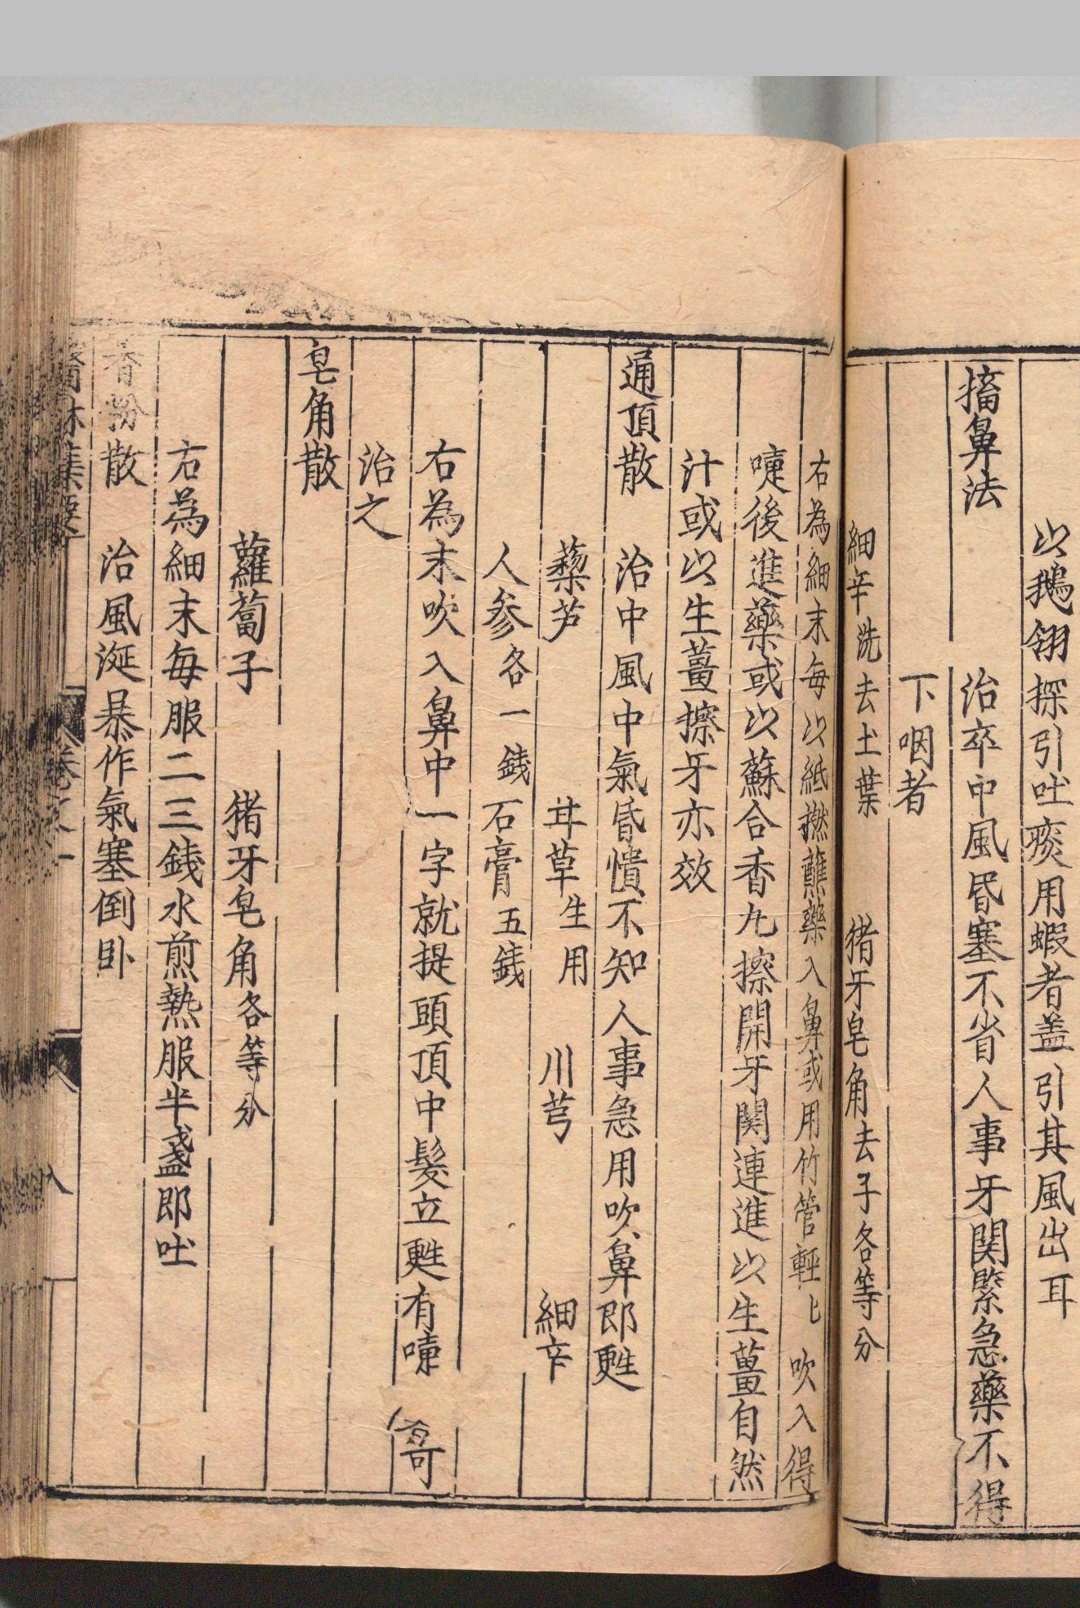 以鵝翎探引吐痰用蝦者盖引其風出耳
搐鼻法
治卒中風昏塞不省人事牙関緊急藥不得
下咽者
細辛洗去土葉　猪牙皂角去子各等分
右為細末每以紙撚蘸藥入鼻或用竹管輕〻吹入得
嚏後進藥或以蘇合香丸擦開牙関連進以生薑自然
汁或以生薑擦牙亦效
通頂散　治中風中氣昏憒不知人事急用吹鼻即甦
藜芦　甘草生用　川芎　細辛
人參各一錢　石膏五錢
右為末吹入鼻中一字就提頭頂中髮立甦有嚏可
治之
皂角散
蘿蔔子　猪牙皂角各等分
右為細末每服二三錢水煎熱服半盞即吐
散　治風涎暴作氣塞倒卧
卷之一
八